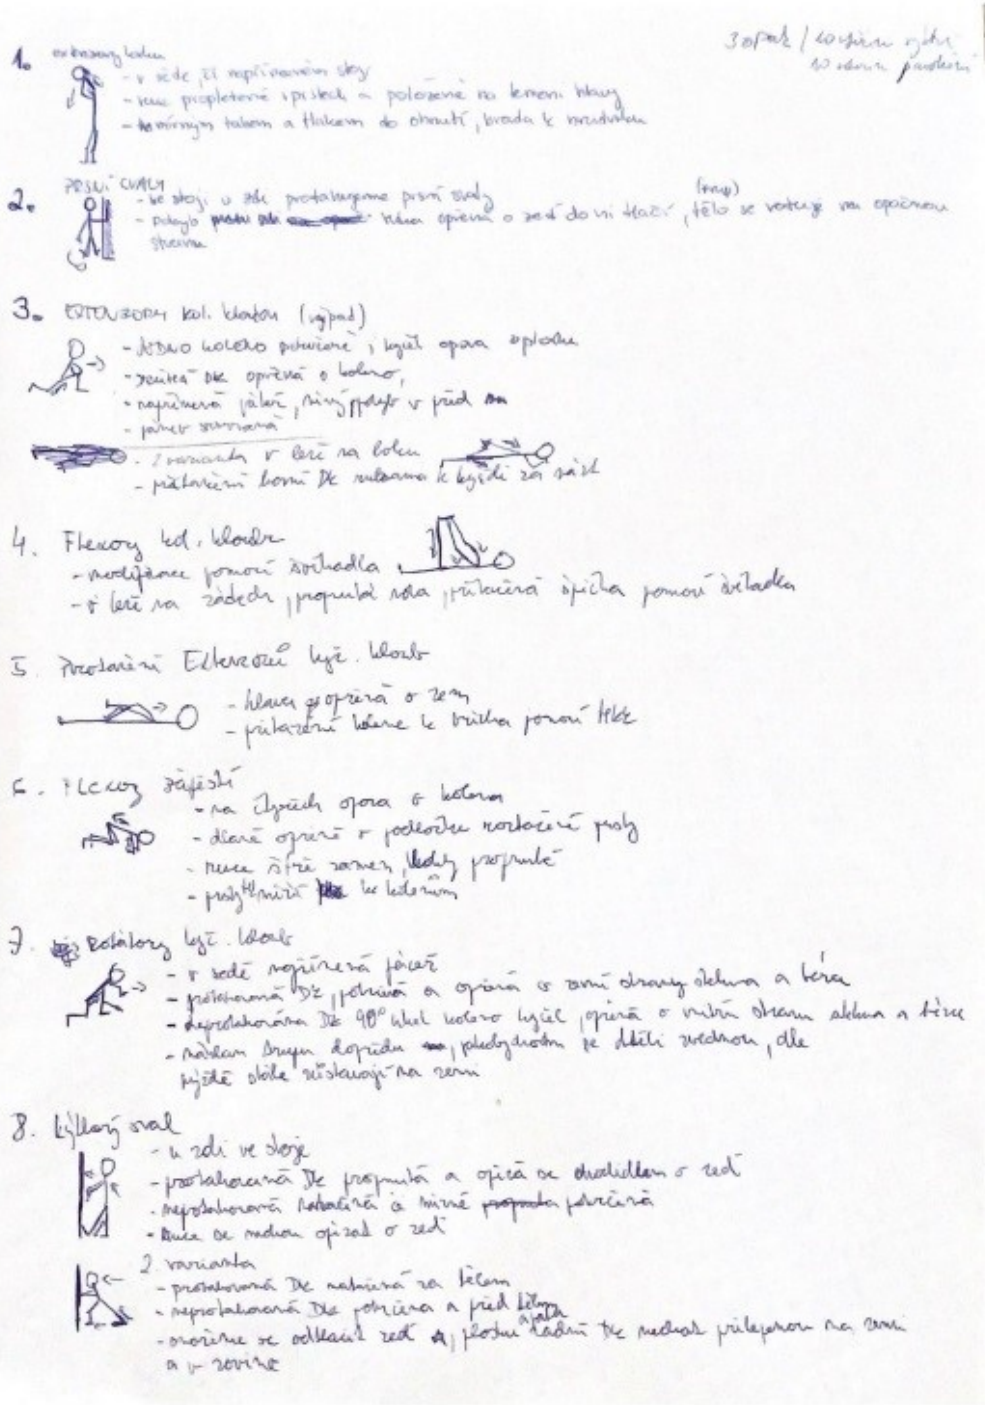 3 opak /
1.
- v sedě či napřímeném stoj
- ruce propletené v prstech a položené na temeni hlavy
- mírným tahem a tlakem do ohnutí, brada k
2. PRSNÍ SVALY
- ve stoji u zdi protahujeme prsní svaly
(trup)
- ruka opřená o zeď do ní tlačí, tělo se rotuje na opačnou
stranu
3. EXTENZORY kol. kloubu (výpad)
- JEDNO KOLENO
- DK opřená o koleno,
- napřímená páteř, v před
- pánev
- 2 varianta v leže na boku
- přitažení horní DK k hýždi
4. Flexory kol. kloubu
- modifikace pomocí švihadla
- v leže na zádech, propnutá noha, přitažená špička pomocí švihadla
5. Protažení Extenzorů kyč. kloub
- hlava opřená o zem
- přitažení kolene k břichu pomocí
6. Flexory zápěstí
- na čtyřech opora o kolena
- dlaně opřené o podložku roztažené prsty
- ruce šíře ramen, lokty propnuté
- prsty míří ke kolenům
7. Rotátory kyč. kloub
- v sedě napřímená páteř
- protahovaná DK, pokrčená a opřená o zevní strany stehna a bérce
- neprotahovaná DK 90° úhel koleno kyčel, opřená o vnitřní stranu stehna a bérce
- náklon trupu dopředu, se zvednou, ale
hýždě stále zůstávají na zemi
8. Lýtkový sval
- u zdi ve stoje
- protahovaná DK propnutá a opírá se chodidlem o zeď
- neprotahovaná mírně pokrčená
- Ruce se mohou opírat o zeď
2. varianta
- protahovaná DK natažená za tělem
- neprotahovaná DK pokrčena a před tělem
- snažíme se odtlačit zeď, zadní DK nechat přilepenou na zemi
a v rovině